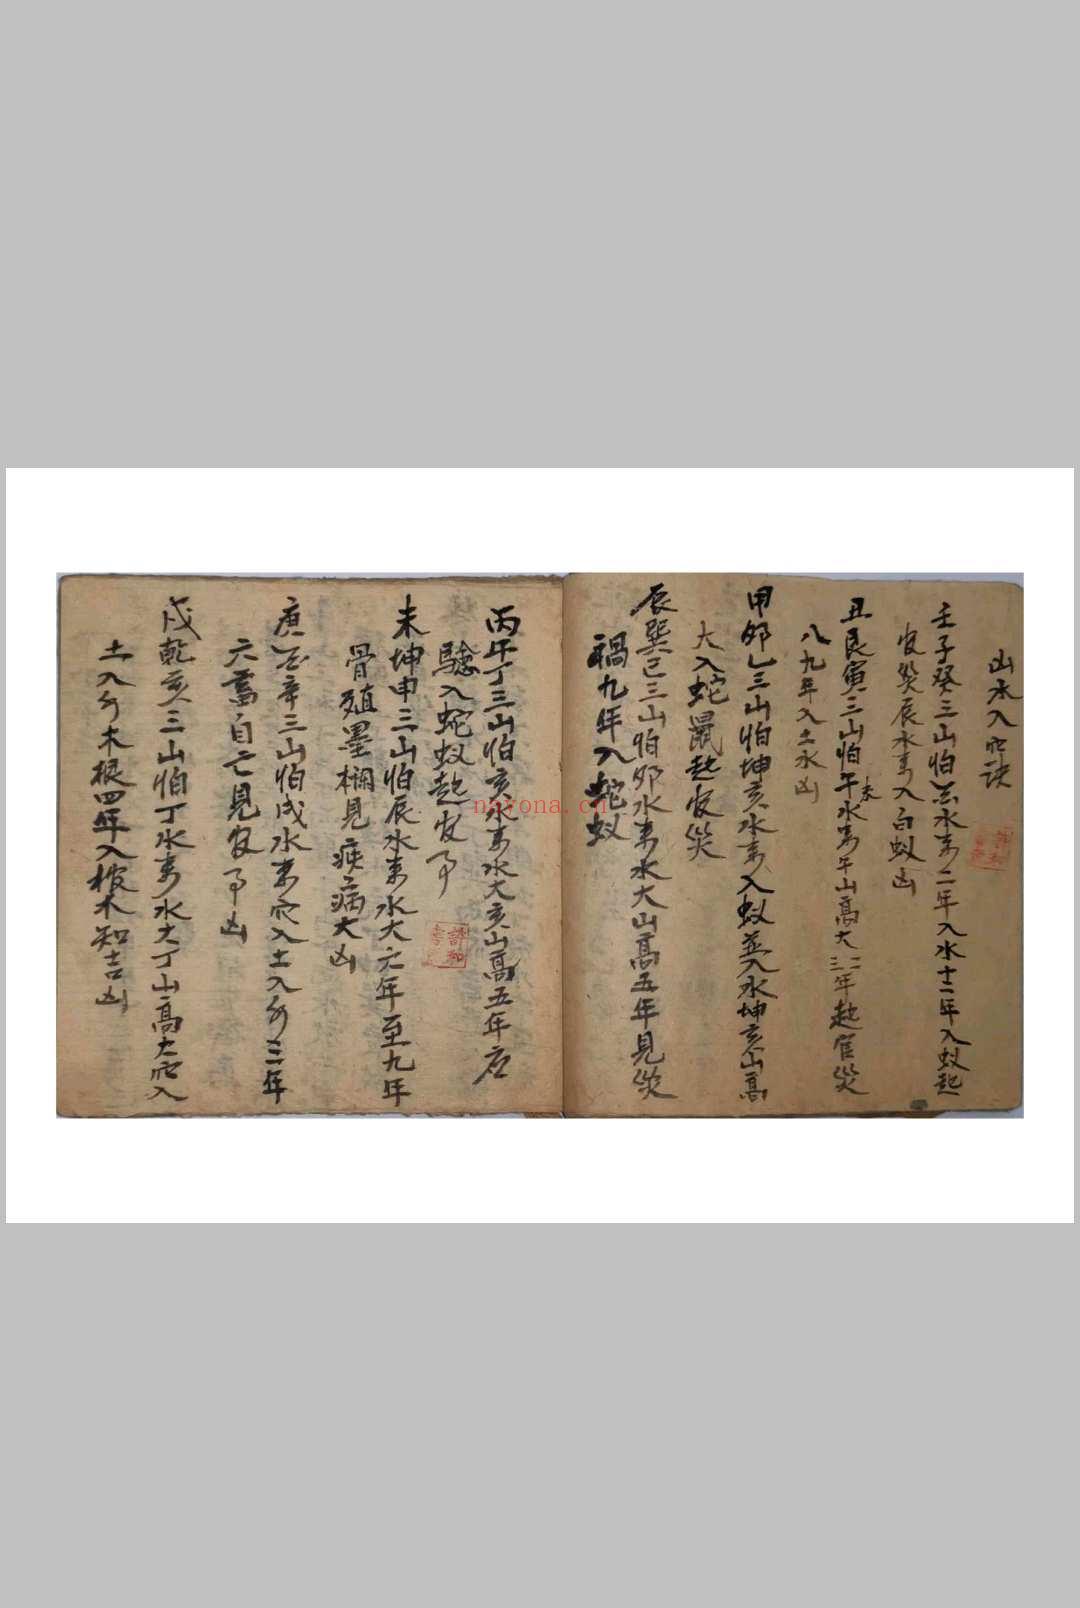 山水入穴訣
壬子癸三山怕 水來二年入水十二年入蚁起
官災辰水來入白蚁凶
丑艮寅三山怕午未水來午山高大二三年起官災
八九年入土水凶
甲卯乙三山怕坤亥水來入蚁并入水坤亥山高
大入蛇鼠起官災
辰巽巳三山怕卯水來水大山高五年見災
禍九年入蛇蚁
丙午丁三山怕亥水來水大亥山高五年应
驗入蛇蚁起官
未坤申三山怕辰水來水大六年至九年
骨殖墨欄見疾病大凶
庚 辛三山怕戌水來穴入土入 三年
六畜自亡見官 凶
戌乾亥三山怕丁水來水大丁山高大穴入
土入 木根四年入棺木知吉凶
nayona.cn